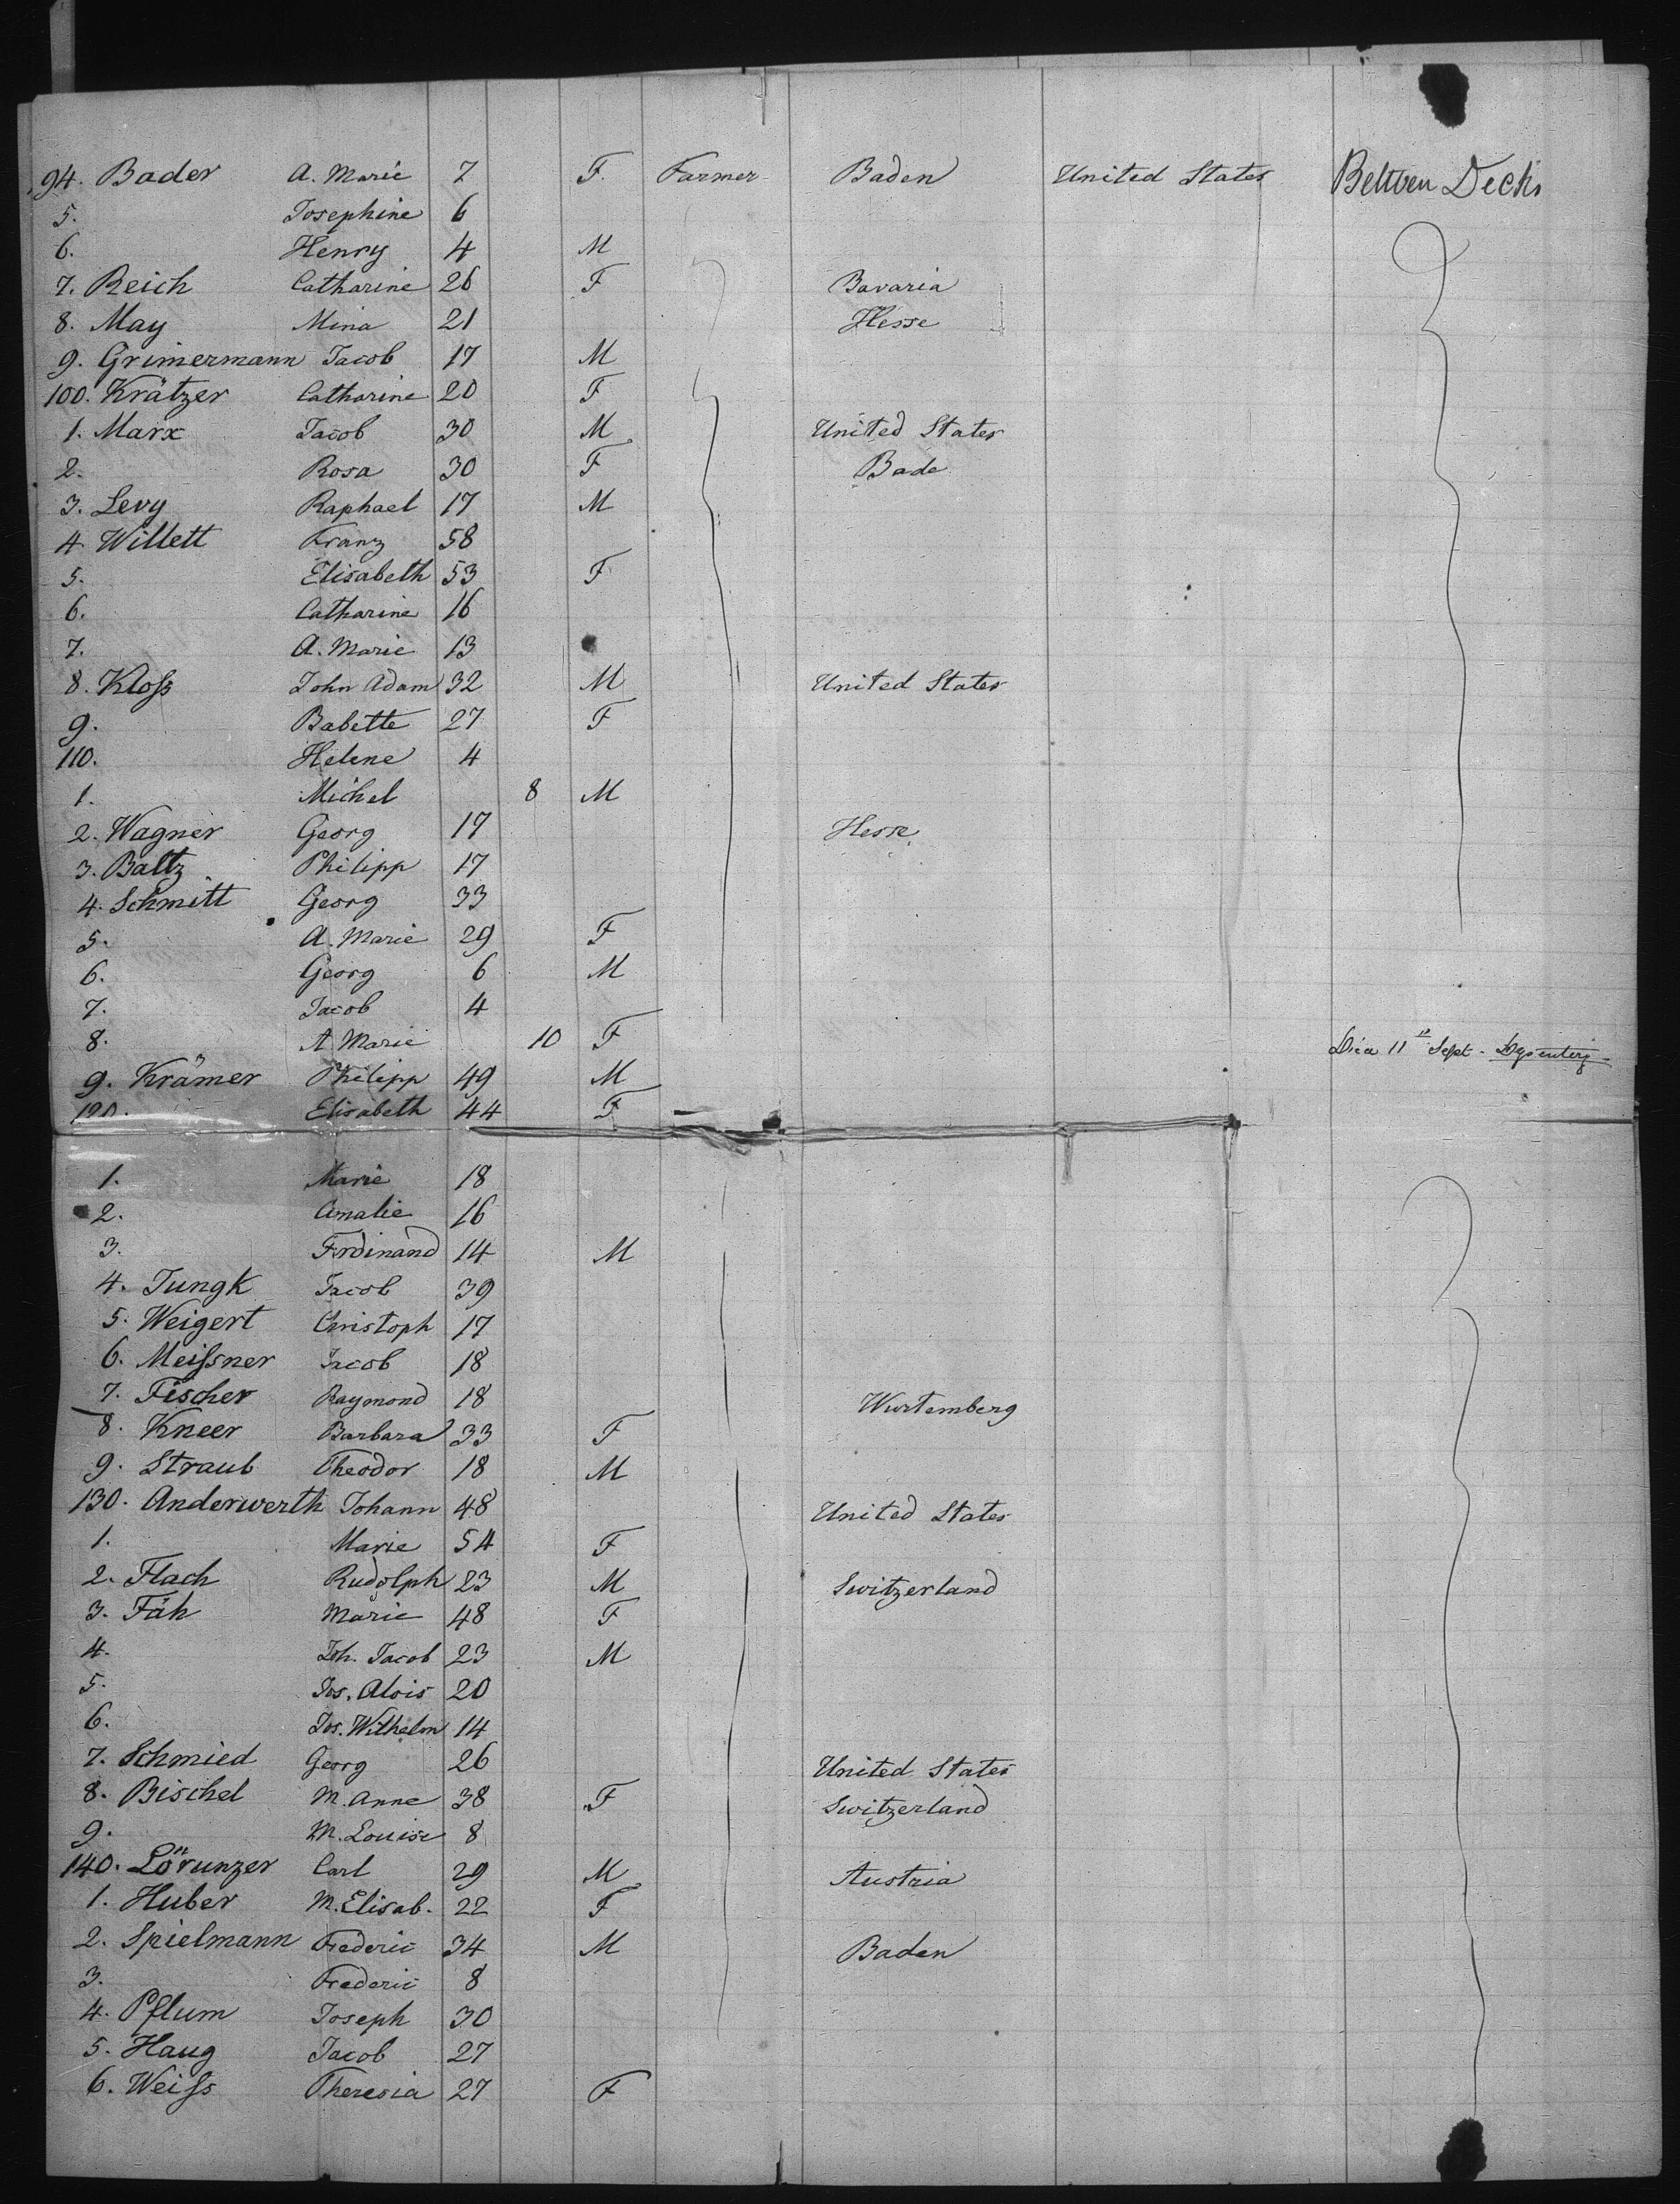 94. Bader A. Marie 7 F. Farmer Baden United States Betwen Decks
5. Josephine 6
6. Henry 4 M
7. Reich Catharine 26 F Bavaria
8. May Mina 21 Hesse
9. Grimermann Jacob 17 M
100. Krätzer Catharine 20 F
1. Marx Jacob 30 M United States
2. Rosa 30 F Bade
3. Levy Raphael 17 M
4. Willett Franz 58
5. Elisabeth 53 F
6. Catharine 16
7. A. Marie 13
8. Kloſs John Adam 32 M United States
9. Babette 27 F
110. Helene 4
1. Michel 8 M
2. Wagner Georg 17 Hesse
3. Baltz Philipp 17
4. Schmitt Georg 33
5. A. Marie 29 F
6. Georg 6 M
7. Jacob 4
8. A Marie 10 F Died 11th Sept. Dysentery
9. Krämer Philipp 49 M
120. Elisabeth 44 F
1. Marie 18
2. Amalie 16
3. Ferdinand 14 M
4. Jungk Jacob 39
5. Weigert Christoph 17
6. Meiſsner Jacob 18
7. Fischer Raymond 18 Wurtemberg
8. Kneer Barbara 33 F
9. Straub Theodor 18 M
130. Anderwerth Johann 48 United States
1. Marie 54 F
2. Flach Rudolph 23 M Switzerland
3. Fäh Marie 48 F
4. Joh. Jacob 23 M
5. Jos. Alois 20
6. Jos. Wilhelm 14
7. Schmied Georg 26 United States
8. Bischel M. Anne 38 F Switzerland
9. M. Louise 8
140. Lörunzer Carl 29 M Austria
1. Huber M. Elisab. 22 F
2. Spielmann Frederic 34 M Baden
3. Frederic 8
4. Pflum Joseph 30
5. Haug Jacob 27
6. Weiſs Theresia 27 F